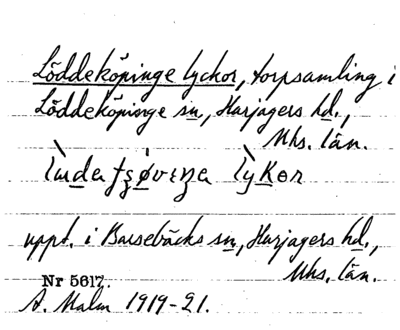 Löddeköpinge lyckor, torpsamling i
Löddeköpinge sn, Harjagers hd.,
Mhs. län.
uppt. i Barsebäcks sn, Harjagers hd.,
Mhs. län.
Nr 5617.
A. Malm 1919-21.